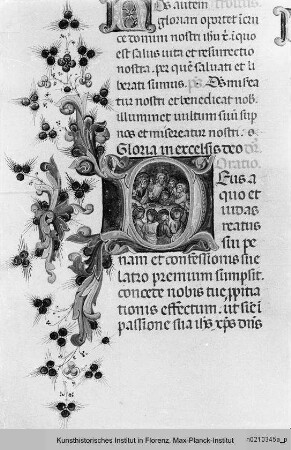 Nos autem
gloriari oportet i cruce
domini nostri ihu χ. i quo
est salus vita et resurrectio
nostra. per quē salvati et li
berati sumus. ps. Ds miserea
tur nostri et benedicat nob.
illuminet vultum suū sup
nos et misereatur nostri.
Gloria in excelsis deo
Oratio.
Deus a
quo et iu
das
reatus
sui pe
nam et confessionis sue
latro premium sumpsit.
concede nobis tue ppitia
tionis effectum. ut sic i
passione sua ihs xps dns
Kunsthistorisches Institut in Florenz, Max-Planck-Institut
n0210345a_p